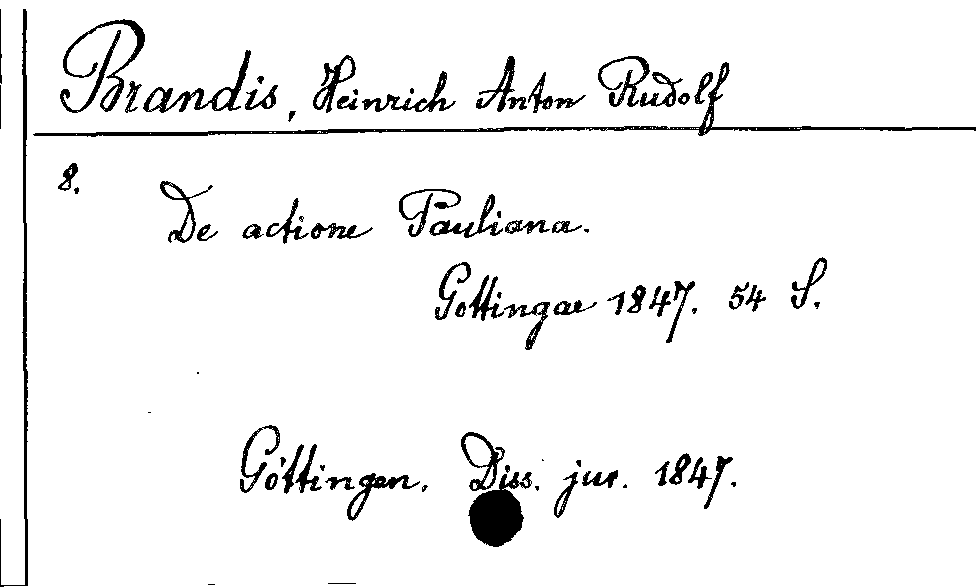 Brandis, Heinrich Anton Rudolf
8.
De actione Pauliana.
Gottingae 1847. 54 S.
Göttingen. Diss. jur. 1847.